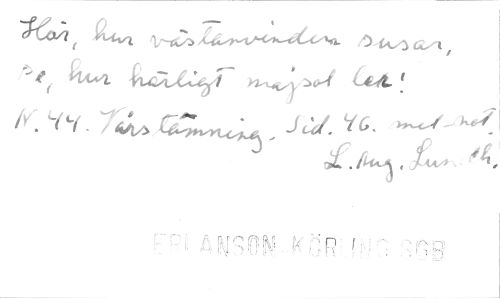 Hör, hur västanvinden susar,
se, hur härligt majsol ler!
N. 44. Vårstämning. Sid. 46. mel-not.
L. Aug. Lundh.
ERLANSON-KÖRLING SGB